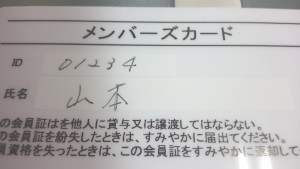 メンバーズカード
ID 01234
氏名 山本
の会員証はを他人に貸与又は譲渡してはならない。
の会員証を紛失したときは、すみやかに届出てください。
員資格を失ったときは、この会員証をすみやかに返却して